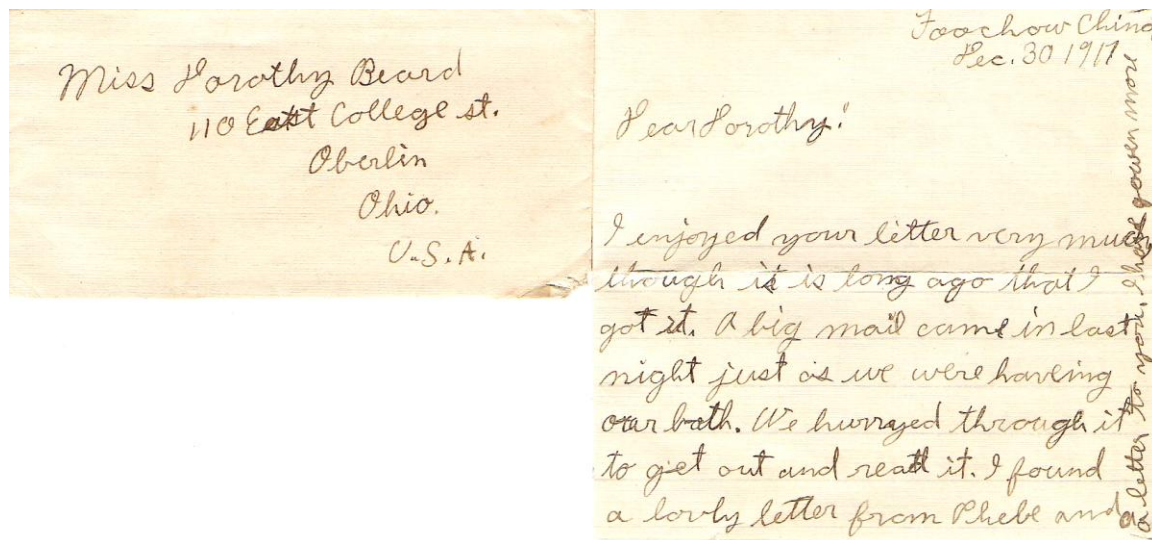 Miss Dorothy Beard
110 East College st.
Oberlin
Ohio.
U.S.A.
Foochow China
Dec. 30 1917
Dear Dorothy!
I enjoyed your letter very much
though it is long ago that I
got it. A big mail came in last
night just as we were haveing
our bath. We hurryed through it
to get out and read it. I found
a lovly letter from Phebe and
a letter to you. I have more